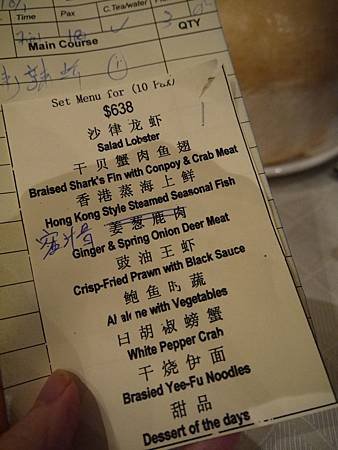 Time Pax C.Tea/water
Main Course QTY
Set Menu for (10 Pax)
$638
沙律龙虾
Salad Lobster
干贝蟹肉鱼翅
Braised Shark's Fin with Conpoy & Crab Meat
香港蒸海上鲜
Hong Kong Style Steamed Seasonal Fish
姜葱鹿肉
Ginger & Spring Onion Deer Meat
豉油王虾
Crisp-Fried Prawn with Black Sauce
鲍鱼时蔬
with Vegetables
白胡椒螃蟹
White Pepper Crab
干烧伊面
Brasied Yee-Fu Noodles
甜品
Dessert of the days